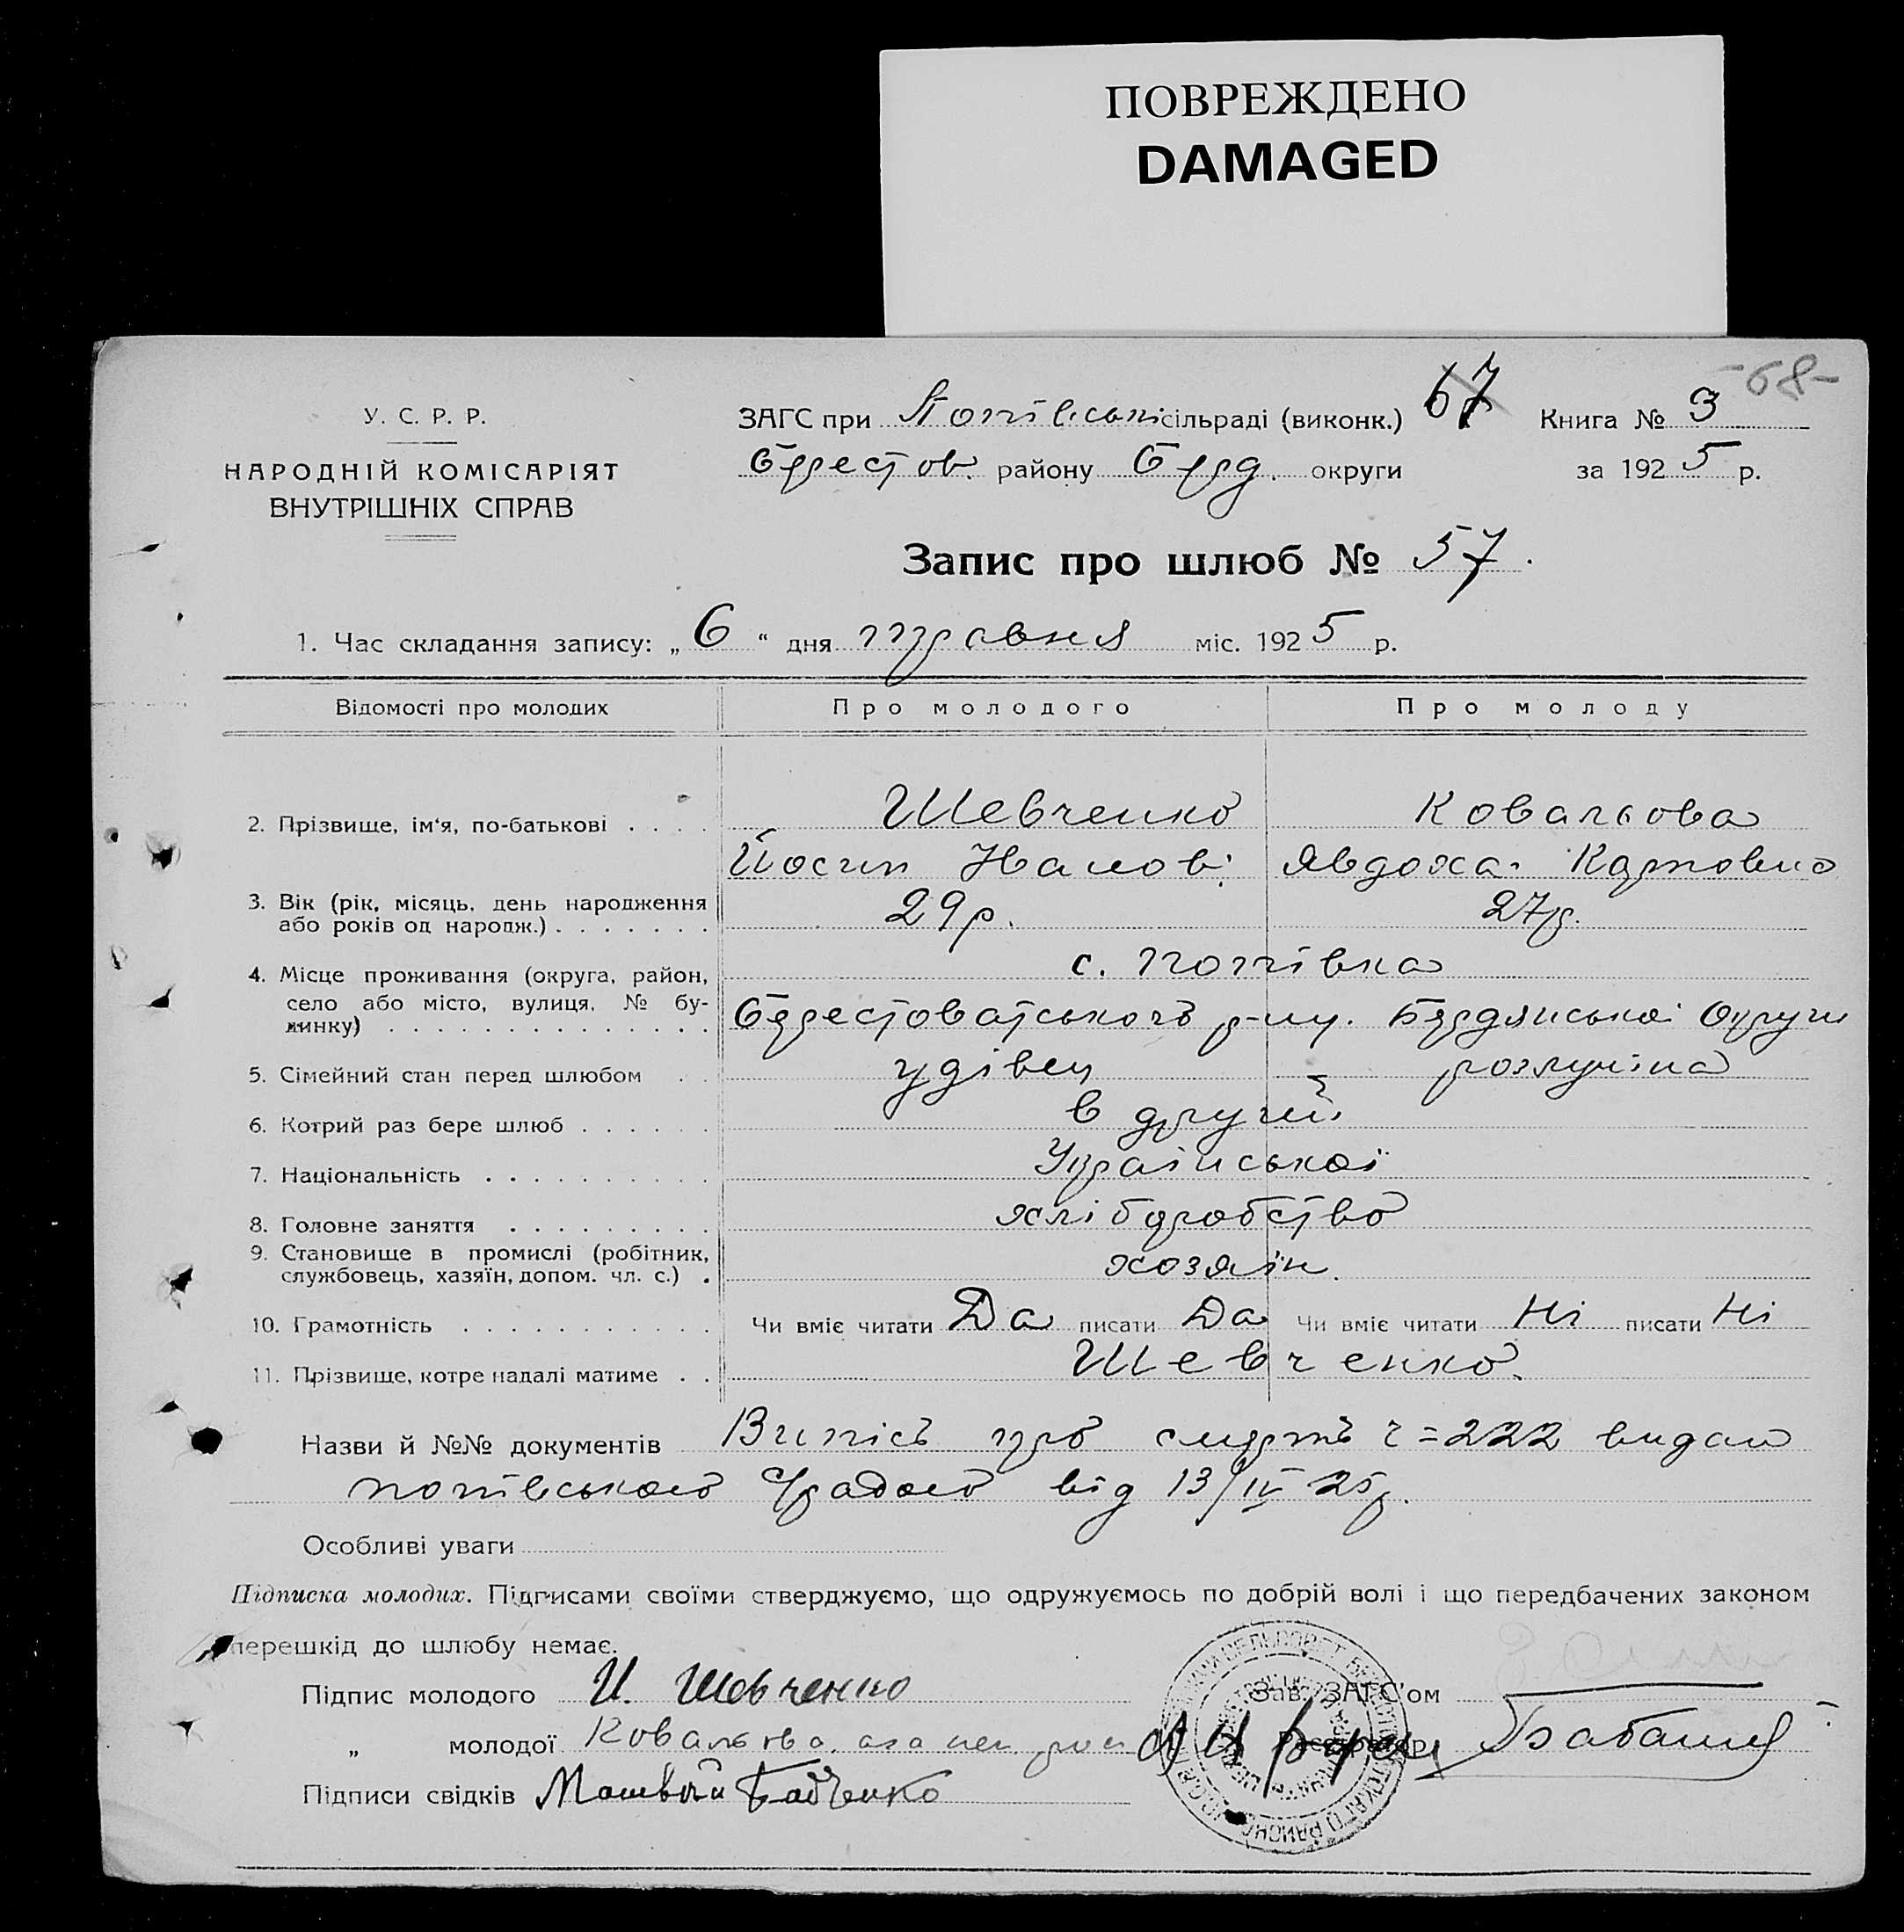 ПОВРЕЖДЕНО
DAMAGED
-68-
У. С. Р. Р.
НАРОДНІЙ КОМІСАРІЯТ
ВНУТРІШНІХ СПРАВ
ЗАГС при Попівські сільраді (виконк.) 67 Книга № 3
Берестов. району Берд. округи за 1925 р.
Запис про шлюб № 57.
1. Час складання запису: „ 6 “ дня травня міс. 1925 р.
Відомості про молодих Про молодого Про молоду
2. Прізвище, ім'я, по-батькові . . . . Шевченко Ковальова
Йосип Іванов. Явдоха Карповна
3. Вік (рік, місяць, день народження
або років од народж.) . . . . . . . 29р. 27р.
4. Місце проживання (округа, район,
село або місто, вулиця, № бу-
динку) с. Попівка
Берестоватського р-ну. Бердянської Округи
5. Сімейний стан перед шлюбом . . удівец розлучіна
6. Котрий раз бере шлюб . . . . . . в другий
7. Національність . . . . . . . . . . Української
8. Головне заняття . . . . . . . . . хліборобство
9. Становище в промислі (робітник,
службовець, хазяїн, допом. чл. с.) . хозяїн.
10. Грамотність . . . . . . . . . . . Чи вміє читати Да писати Да Чи вміє читати Ні писати Ні
11. Прізвище, котре надалі матиме . . Шевченко.
Назви й №№ документів Випісь про смерть ч=222 видан
попівською Срадою від 13/IV 25р.
Особливі уваги
Підписка молодих. Підписами своїми стверджуємо, що одружуємось по добрій волі і що передбачених законом
перешкід до шлюбу немає.
Підпис молодого И. Шевченко Зав. ЗАГС'ом
„ молодої Ковальова, а за неі Реєстратор
Підписи свідків Матвый Бабченко